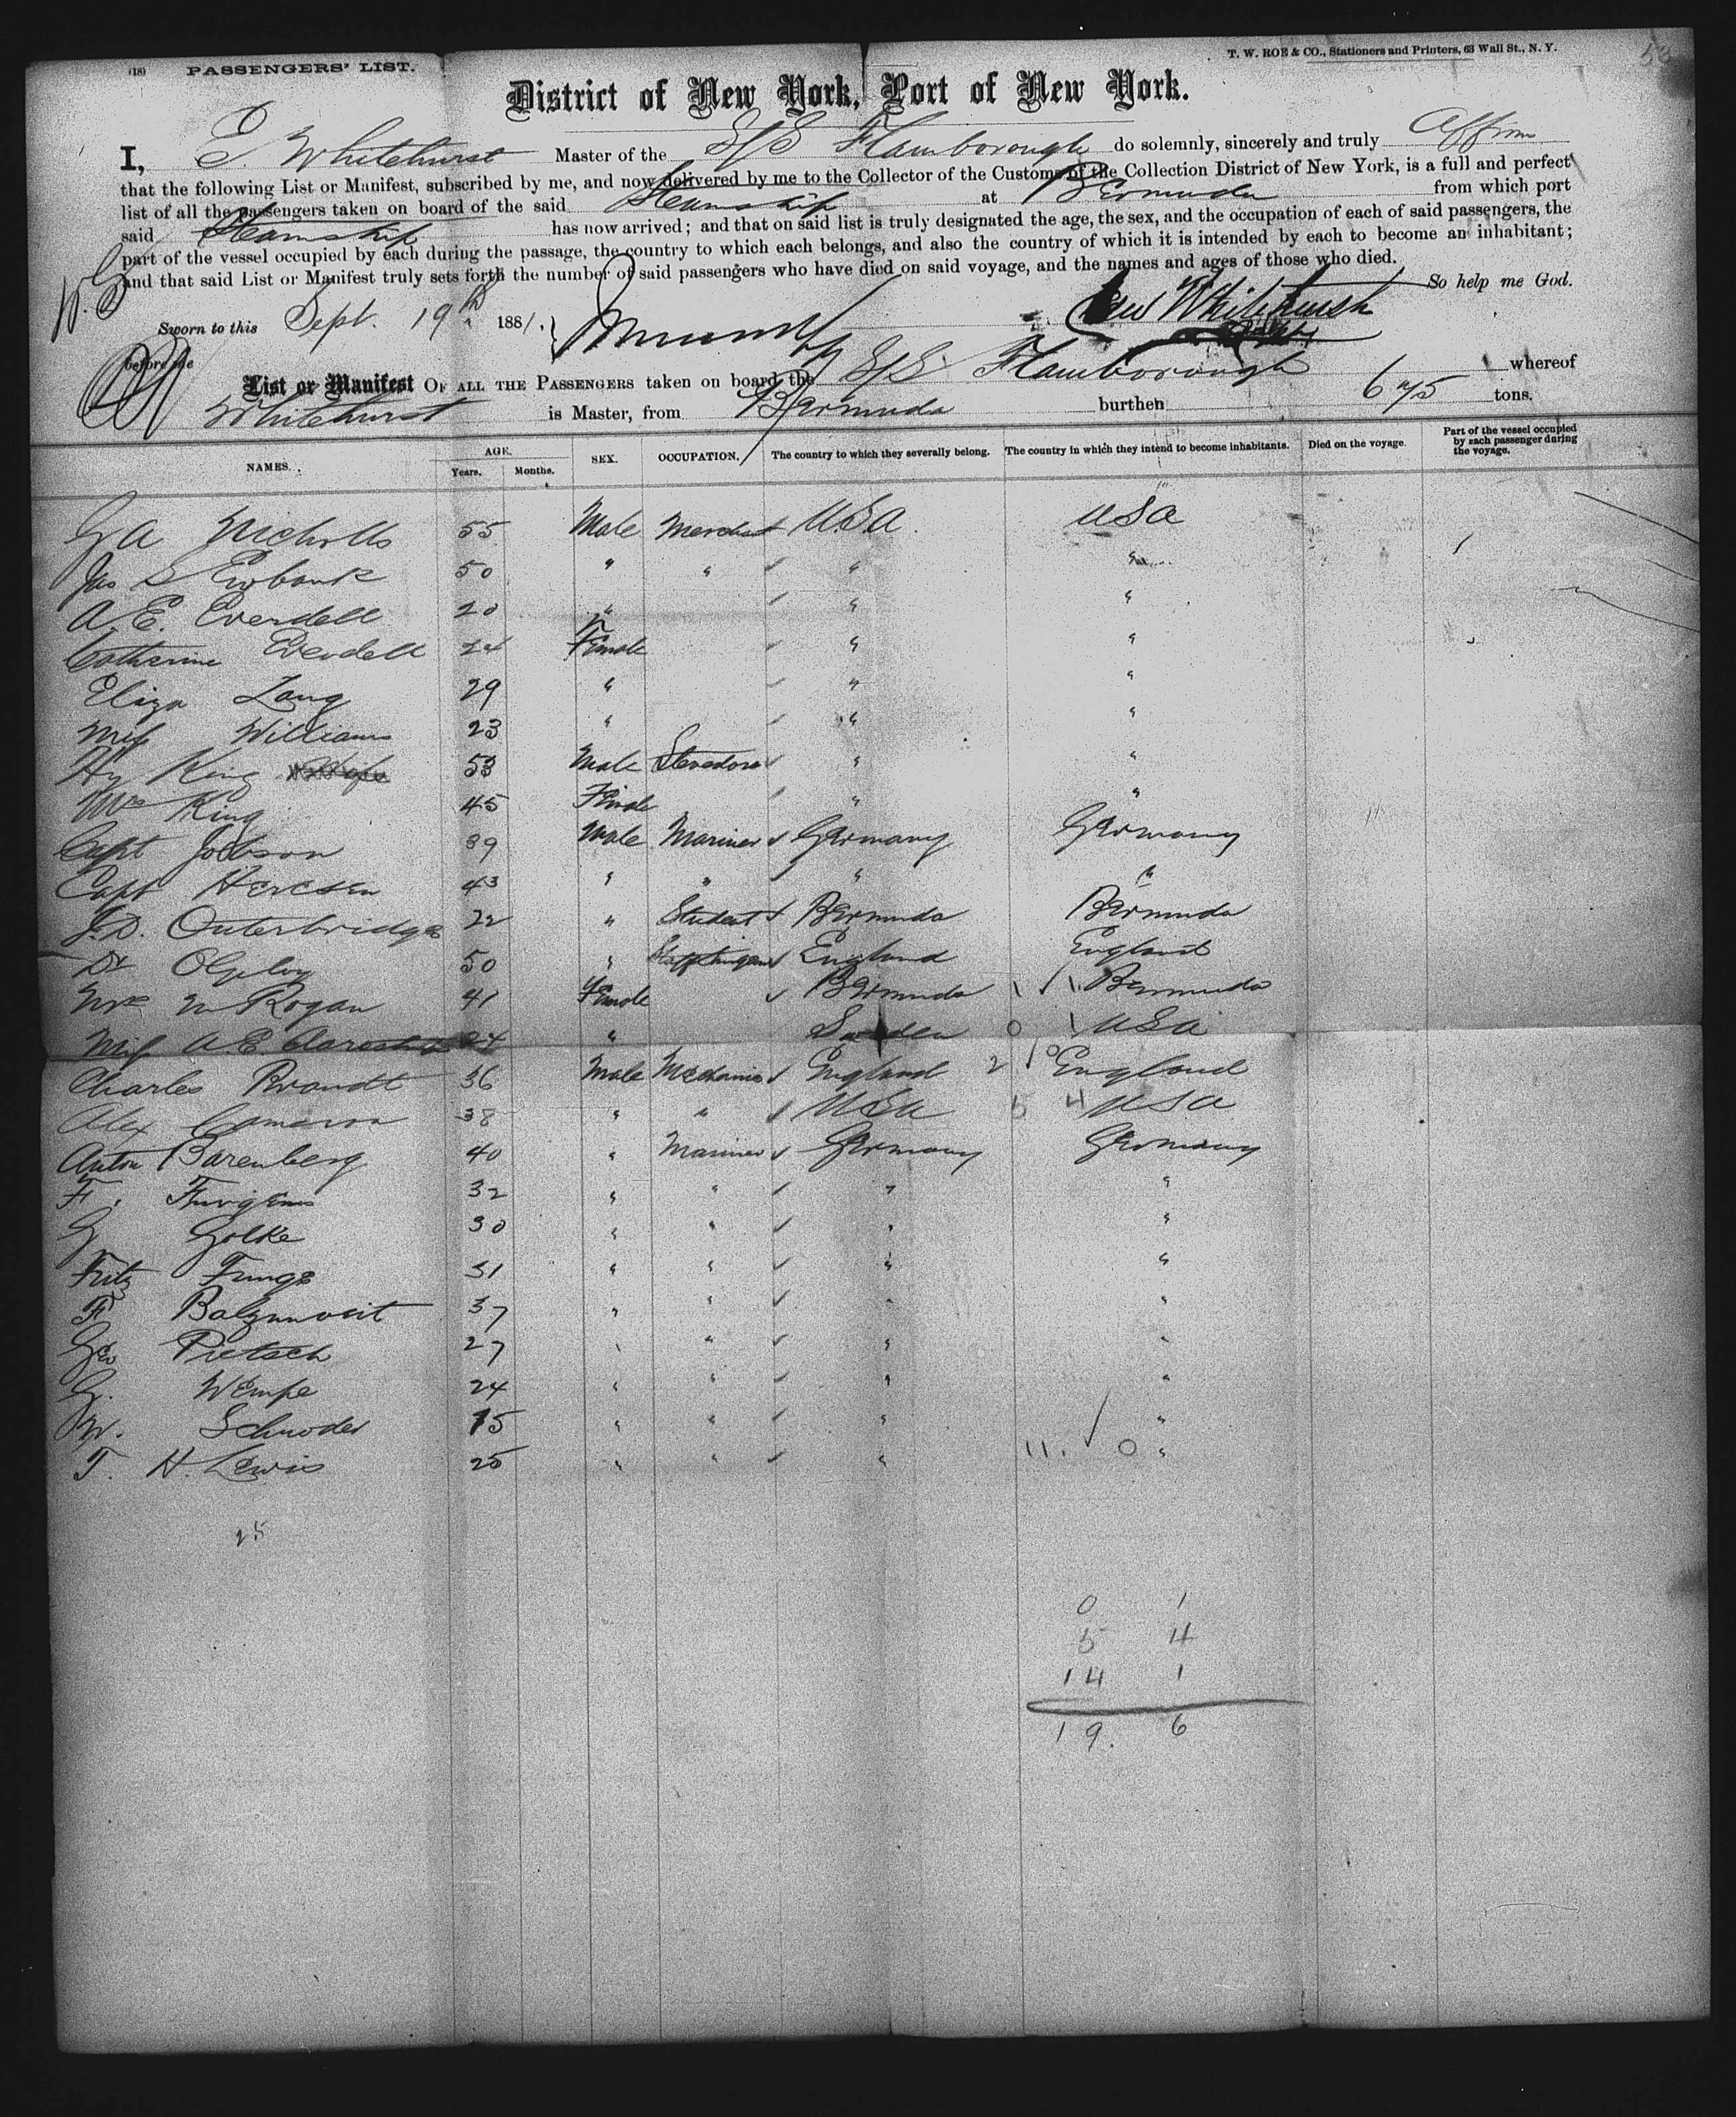 (18) PASSENGERS' LIST.
T. W. ROE & CO., Stationers and Printers, 63 Wall St., N. Y.
53
District of New York, Port of New York.
I, Whitehurst Master of the S/S Flamborough do solemnly, sincerely and truly affirm
that the following List or Manifest, subscribed by me, and now delivered by me to the Collector of the Customs of the Collection District of New York, is a full and perfect
list of all the passengers taken on board of the said Steamship at Bermuda from which port
said Steamship has now arrived; and that on said list is truly designated the age, the sex, and the occupation of each of said passengers, the
part of the vessel occupied by each during the passage, the country to which each belongs, and also the country of which it is intended by each to become an inhabitant;
and that said List or Manifest truly sets forth the number of said passengers who have died on said voyage, and the names and ages of those who died.
So help me God.
Sworn to this Sept. 19th 1881, Whitehurst
before me
List or Manifest OF ALL THE PASSENGERS taken on board the S/S Flamborough whereof
Whitehurst is Master, from Bermuda burthen 675 tons.
NAMES. AGE. Years. Months. SEX. OCCUPATION. The country to which they severally belong. The country in which they intend to become inhabitants. Died on the voyage. Part of the vessel occupied by each passenger during the voyage.
G A Nicholls 55 Male Merchant USA USA
Jas S Ewbank 50 " " " "
A. E. Everdell 20 " " "
Catherine Everdell 24 Female " "
Eliza Lang 29 " " "
Miss Williams 23 " " "
Hy King & Wife 53 Male Stevedore " "
Mrs King 45 Female " "
Capt Jobson 39 Male Mariner Germany Germany
Capt 43 " " " "
J. D. Outerbridge 22 " Student Bermuda Bermuda
Dr 50 " England England
Mrs M Rogan 41 Female Bermuda Bermuda
Miss A. E. 24 " Sweden 0 1 USA
Charles Brandt 36 Male Mechanic England 2 0 England
Alex Cameron 38 " " USA 5 4 USA
Anton Barenberg 40 " Mariner Germany Germany
F. 32 " " " "
G Golke 30 " " " "
Fritz Funge 31 " " " "
F 37 " " " "
Geo Pietsch 27 " " " "
G. Wempe 24 " " " "
W. Schroder 15 " " " "
T. H. Lewis 25 " " " 11. 0 "
25
0 1
5 4
14 1
19. 6